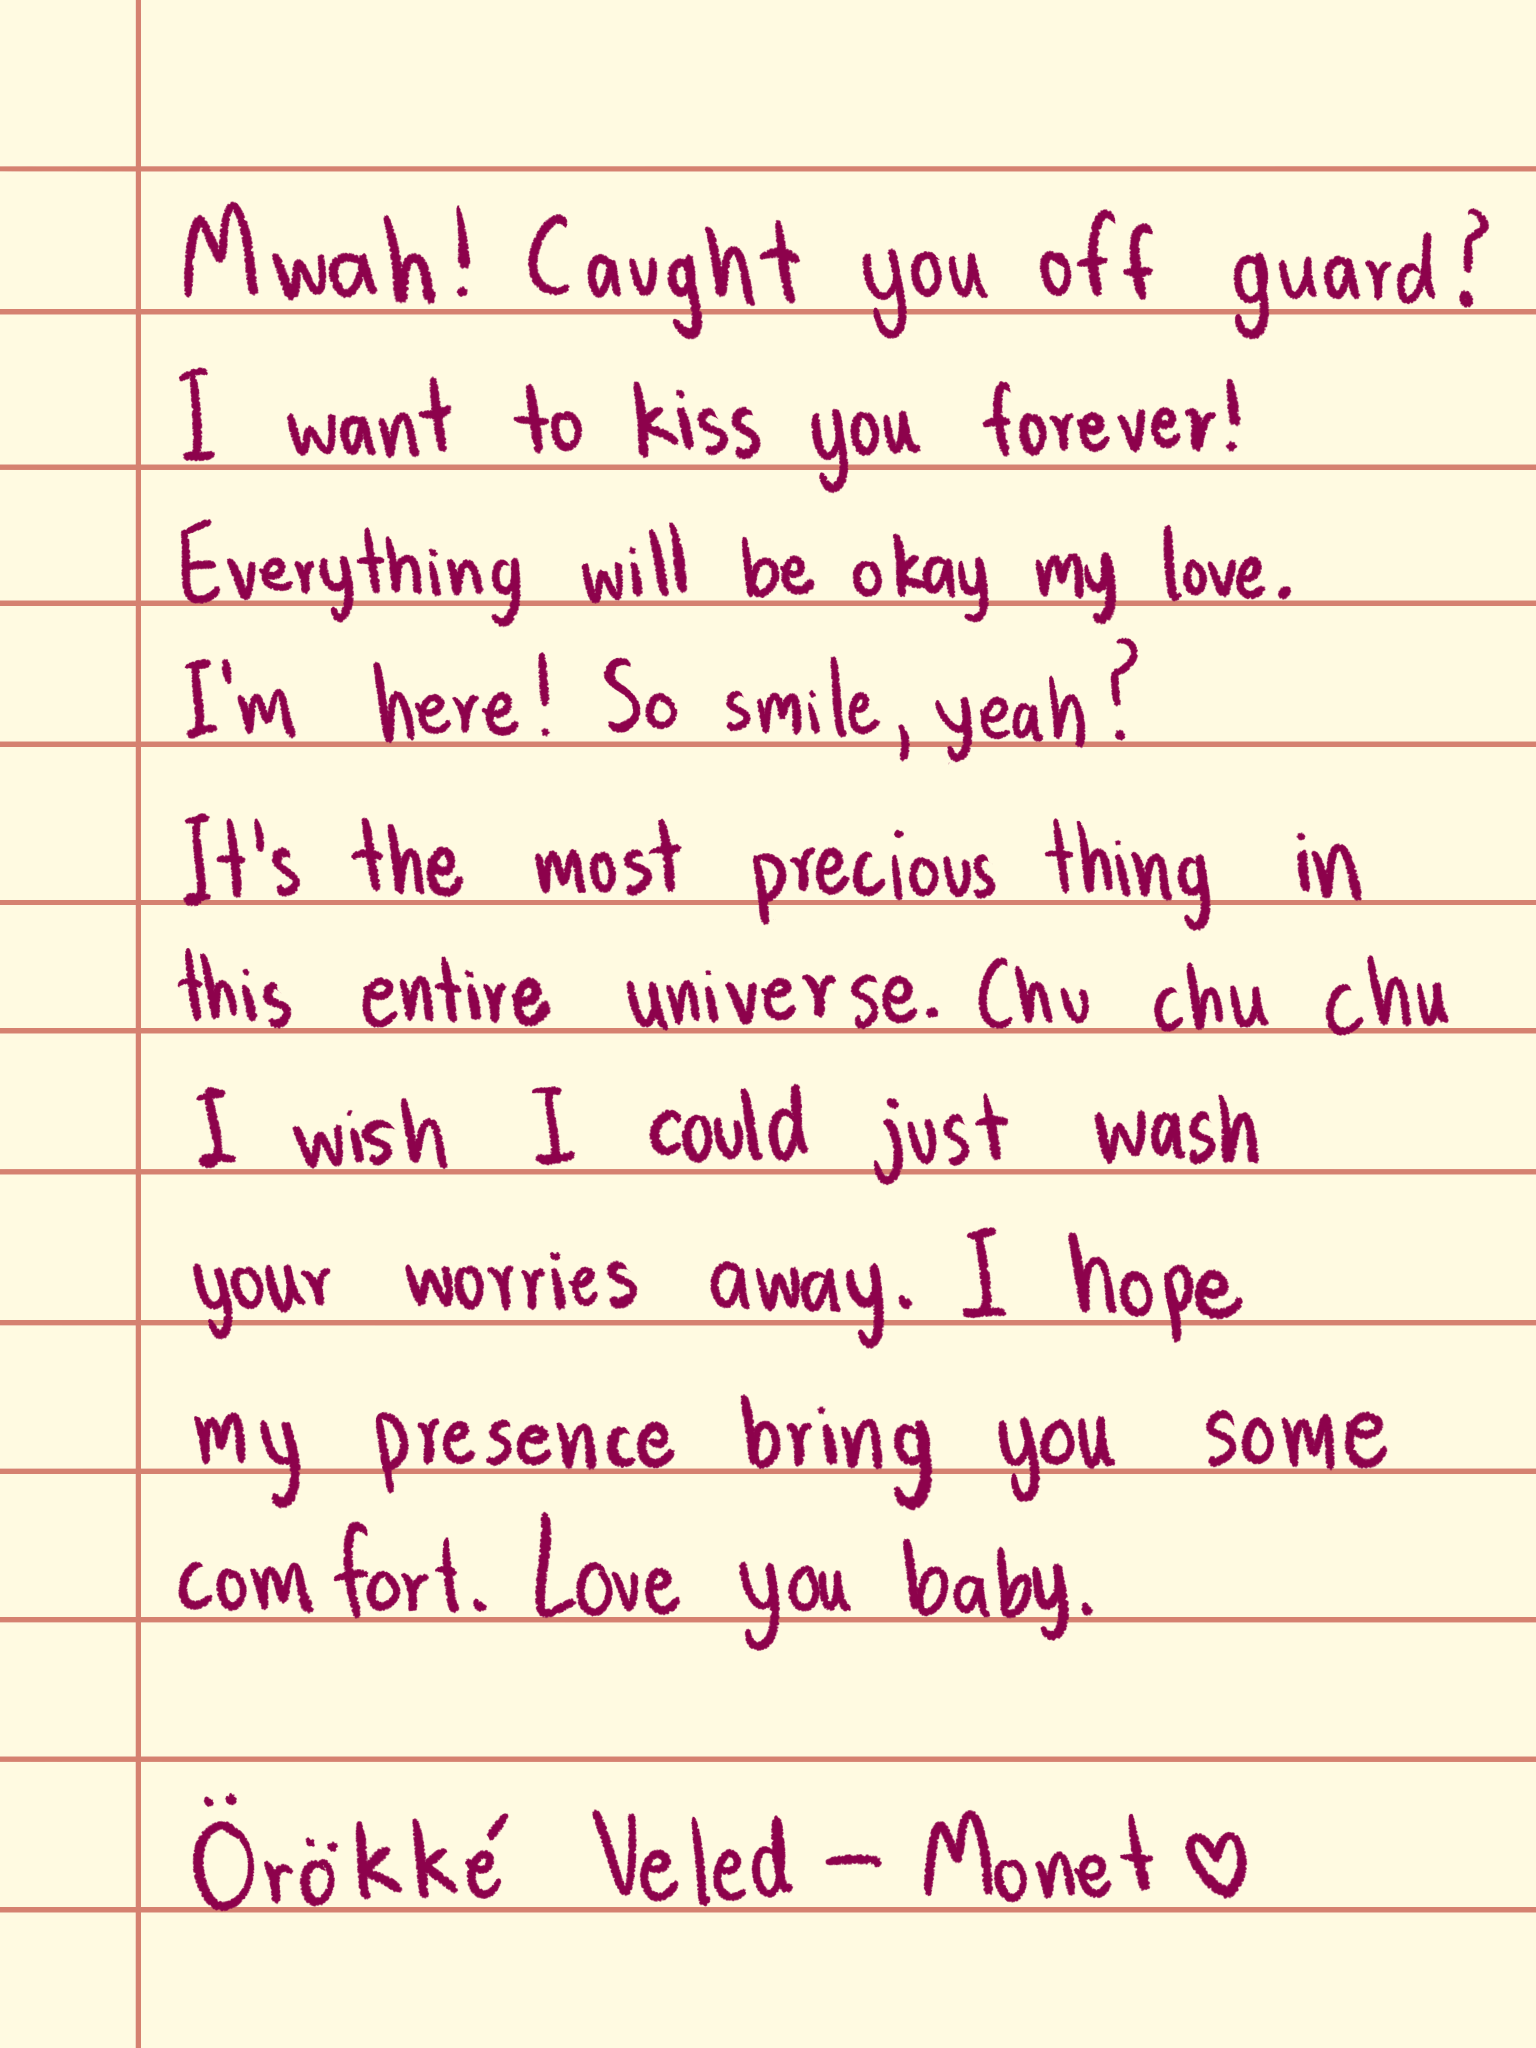 Mwah! Caught you off guard?
I want to kiss you forever!
Everything will be okay my love.
I'm here! So smile, yeah?
It's the most precious thing in
this entire universe. Chu chu chu
I wish I could just wash
your worries away. I hope
my presence bring you some
comfort. Love you baby.
Örökké Veled — Monet ♡